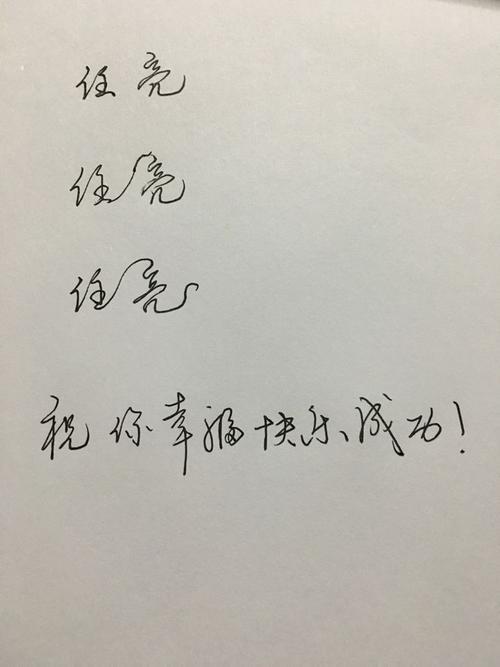 任亮
任亮
任亮
祝你幸福快乐、成功！